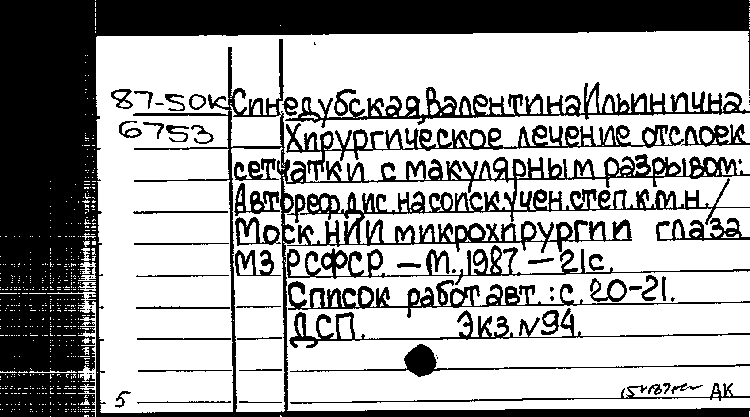 87-50к Синедубская, Валентина Ильинична
6753 Хирургическое лечение отслоек
сетчатки с макулярным разрывом:
Автореф. дис. на соиск. учен. степ. к.м.н. /
Моск. НИИ микрохирургии глаза
МЗ РСФСР. – М., 1987. – 21с.
Список работ авт.: с. 20-21.
ДСП. Экз. N94.
5 АК